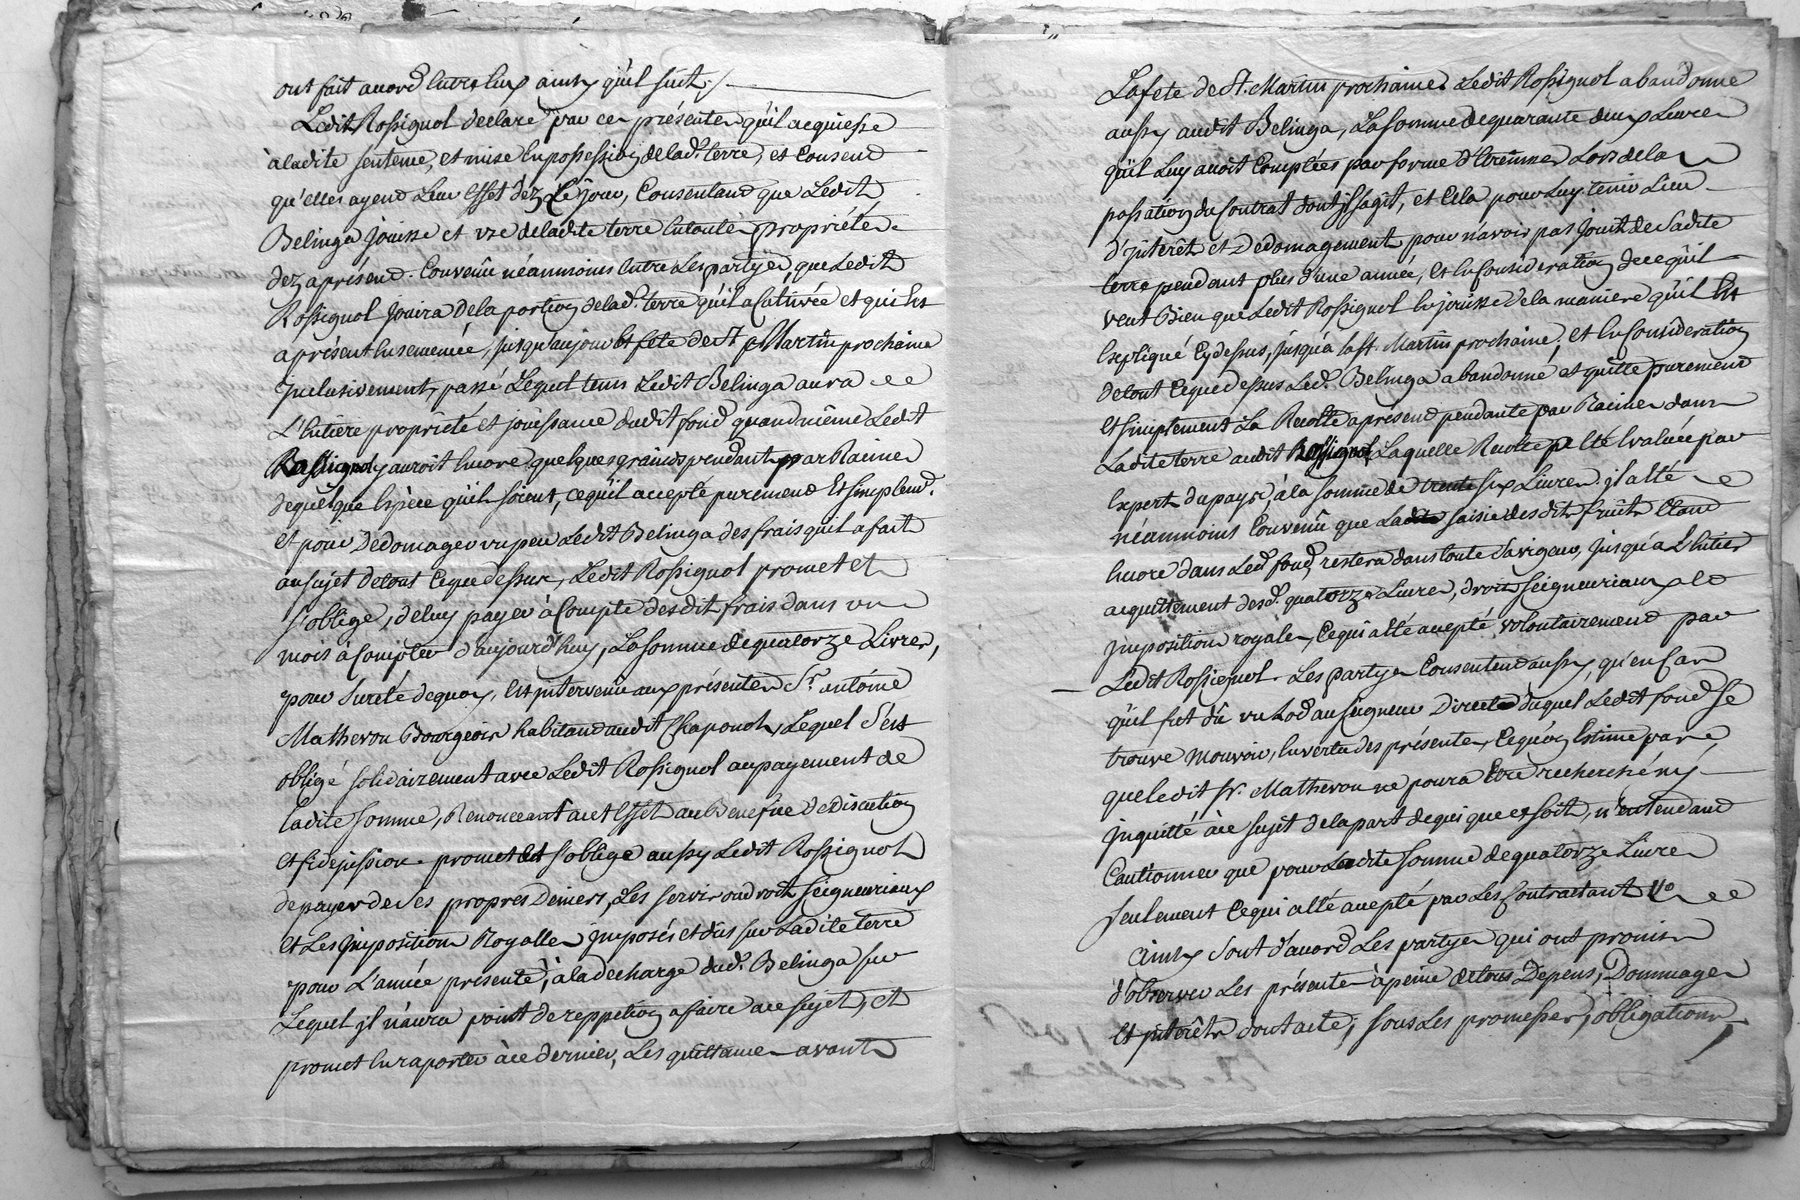 ont fait accord Entre Eux ainsy qu'il suit ;/
Ledit Rossignol declare par ces présentes qu'il acquiesse
à ladite sentence, et mise En possession de lad.e terre, et Consent
qu'elles ayent Leur Effet dez Ce jour, Consentant que Ledit
Belinga jouisse et vze de ladite terre En toute propriétée
dez aprésent. Convenû néanmoins Entre Les partyes, que Ledit
Rossignol jouira de la portion de lad.e terre qu'il a Cultivée et qui Est
aprésent Ensemencée, jusqu'au jour Et fete de St Martin prochaine
jnclusivement, passé Lequel tems Ledit Belinga aura
L'Entière propriété et jouissance dudit fond quand même Ledit
Rossignol y auroit Encore quelques grains pendant par Racines
de quelque Espèce qu'ils soient, ce qu'il accepte purement Et simplem.t
Et pour Dedomager un peu Ledit Belinga des frais qu'il a fait
au sujet de tout Ce que dessus, Ledit Rossignol promet et
s'oblige, de luy payer à Compte desdit frais dans un
mois à Compter d'aujourd'huy, La somme de quatorze Livres,
pour Sureté de quoy, Est jntervenu aux présentes Sr. antoine
Matheron Bourgeois habitant audit Chaponost, Lequel S'est
obligé solidairement avec Ledit Rossignol au payement de
ladite somme, Renonceant a cet Effet au Benefice de discution
Et fidejussion. promet Et s'oblige aussy Ledit Rossignol
de payer de ses propres Deniers, Les servis ou droit seigneuriaux
et Les jmpositions Royalles jmposés et dûs sur Ladite terre
pour L'année présente, à la decharge dud.t Belinga sur
Lequel jl n'aura point de reppetion a faire a ce sujet, et
promet En raporter à ce dernier, Les quittances avant
La fete de St. Martin prochaine. Ledit Rossignol abandonne
aussy audit Belinga, La somme de quarante deux Livres
qu'il Luy avoit Comptées par forme d'Etrennes Lors de la
passation du Contrat dont jl s'agit, et Cela pour Luy tenir Lieu
d'jnterêt et Dedomagement pour n'avoir pas jouit de Sadite
terre pendant plus d'une année, Et En Consideration de ce qu'il
veut Bien que Ledit Rossignol En jouisse de la maniere qu'il Est
Expliqué Cy dessus, jusqu'a la St. Martin prochaine, et En Consideration
de tout Ce que dessus Led.t Belinga abandonne et quitte purement
Et simplement La Recolte aprésent pendante par Racines dans
Ladite terre audit Rossignol, Laquelle Recolte a Eté Evaluée par
Expert du pays, à la somme de trente six Livres. jl a Eté
néanmoins Convenû que La saisie desdits fruits Etant
Encore dans Led.t fond, restera dans toute Sa vigeur, jusqu'a L'Entier
acquittement desd. quatorze Livres, droits seigneuriaux et
jmpositions royales, Ce qui a Eté accepté volontairement par
Ledit Rossignol. Les partyes Consentent aussy, qu'en Cas
qu'il fut dû un Lod au seigneur Direct duquel Ledit fond se
trouve Mouvoir, En vertu des présentes,
que ledit sr. Matheron ne poura Etre recherché ny
jnquitté à ce sujet de la part de qui que ce soit, n'entendant
Cautionner que pour Ladite somme de quatorze Livres
seulement Ce qui a Eté accepté par Les Contractant
Ainsy Sont d'acord Les partyes qui ont promis
d'observer Les présentes à peine de tous Depens, Dommages
Et jnterêts dont acte, sous Les promesses, obligations,